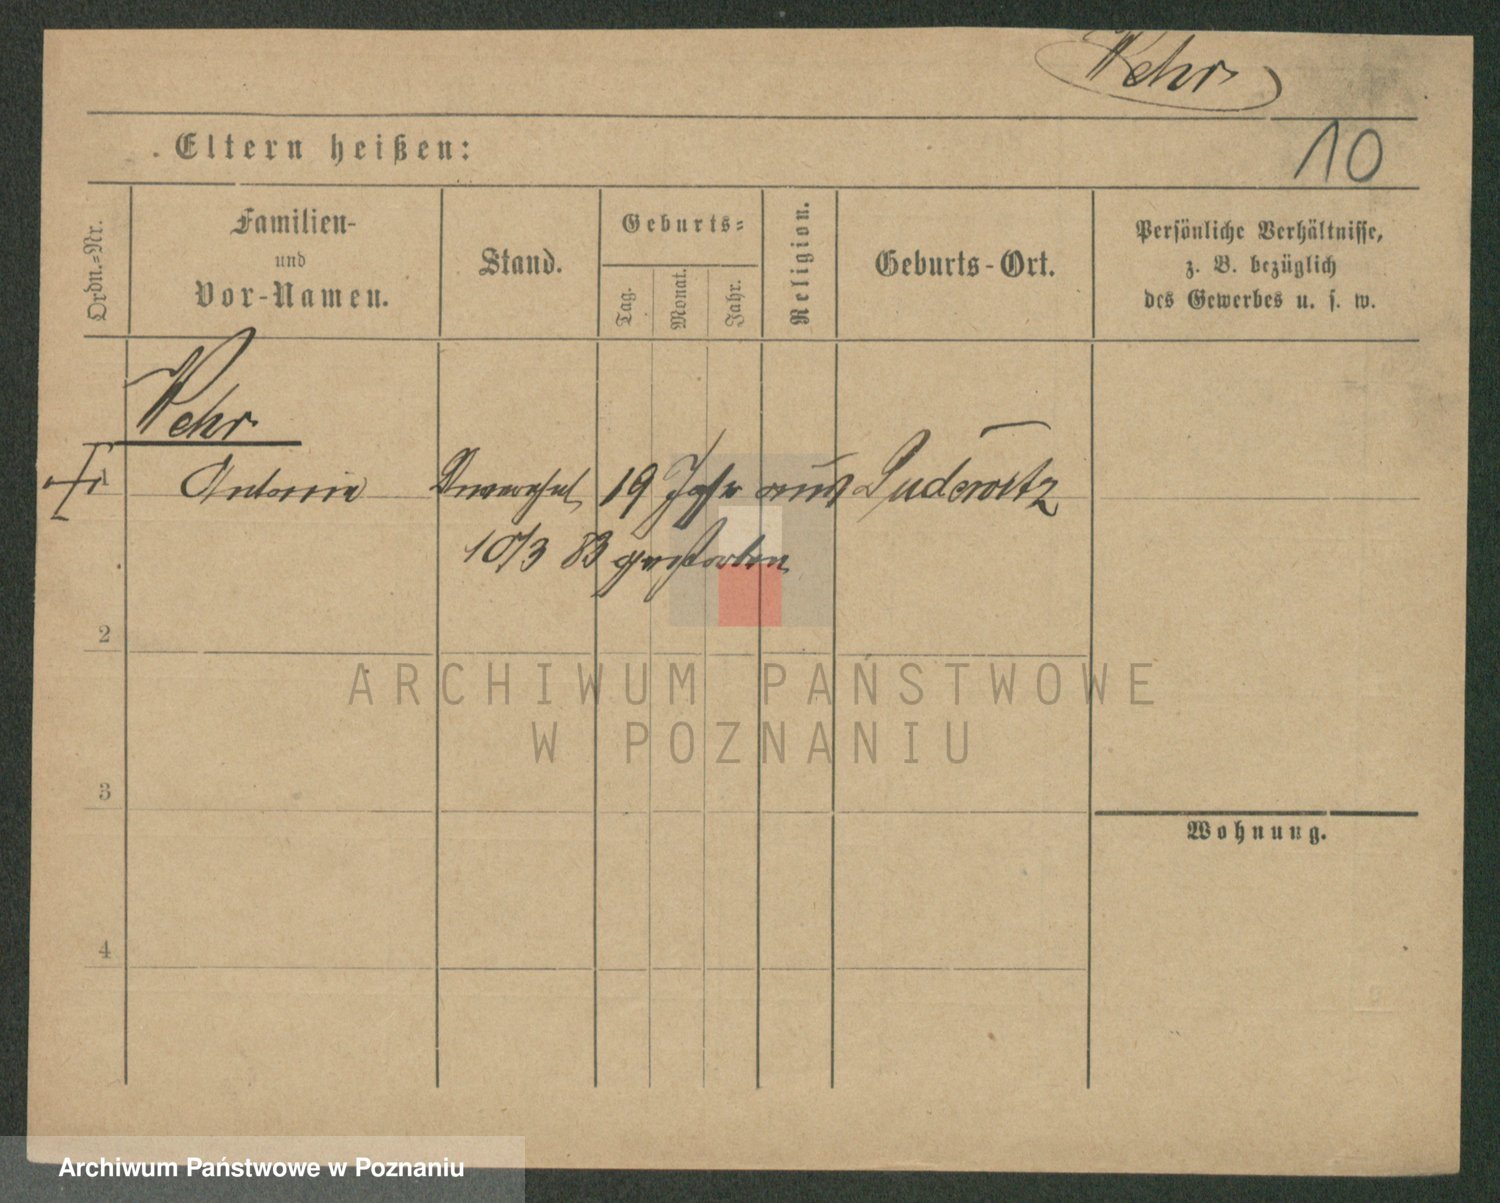 Wehr
10
. Eltern heißen:
Ordn.=Nr.
Familien-
und
Vor-Namen.
Stand.
Geburts=
Tag.
Monat.
Jahr.
Religion.
Geburts-Ort.
Persönliche Verhältnisse,
z. B. bezüglich
des Gewerbes u. s. w.
Wehr
1 Antonie 19 Jahr aus Luderwitz
10/3 83 gestorben
2
ARCHIWUM PAŃSTWOWE
W POZNANIU
3
Wohnung.
4
Archiwum Państwowe w Poznaniu